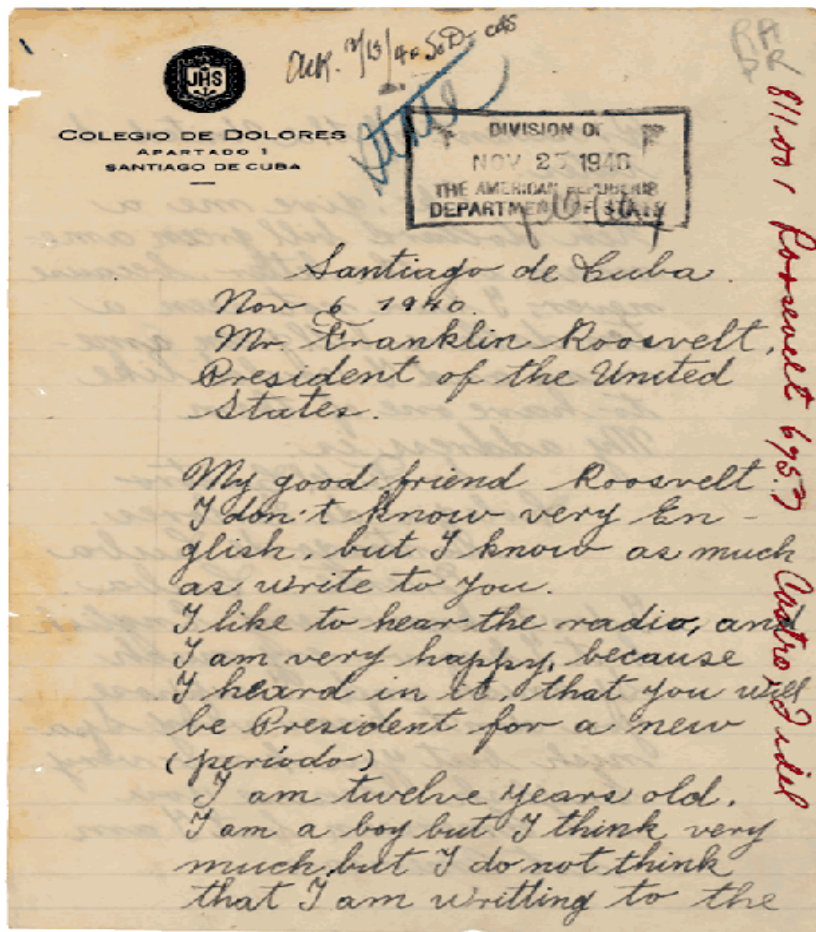 JHS
COLEGIO DE DOLORES
APARTADO 1
SANTIAGO DE CUBA
State
DIVISION OF
NOV 27 1940
THE AMERICAN REPUBLICS
DEPARTMENT OF STATE
Santiago de Cuba.
Nov 6 1940.
Mr. Franklin Roosvelt,
President of the United
States.
My good friend Roosvelt
I don't know very En-
glish, but I know as much
as write to you.
I like to hear the radio, and
I am very happy, because
I heard in it, that you will
be President for a new
(período)
I am twelve years old.
I am a boy but I think very
much but I do not think
that I am writting to the
811.001 Roosevelt Castro, Fidel